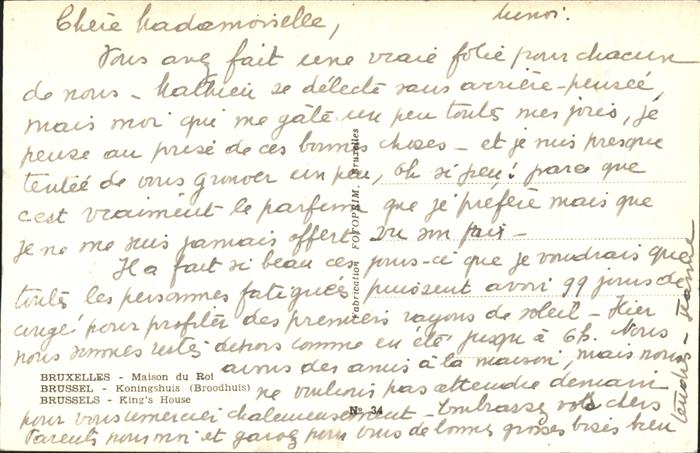 Chère Mademoiselle,
Vous avez fait une vraie folie pour chacun
de nous - Mathieu se délecte sans arrière-pensée,
mais moi qui me gâte un peu tous mes jours, je
pense au prix de ces bonnes choses - et je suis presque
tentée de vous gronder un peu, oh si peu! parce que
c'est vraiment le parfum que je préfère mais que
je ne me suis jamais offert vu son prix -
Il a fait si beau ces jours-ci que je voudrais que
toutes les personnes fatiguées puissent avoir 99 jours de
congé pour profiter des premiers rayons de soleil - Hier
nous sommes restés dehors comme en été jusqu'à 6h. Nous
avons des amis à la maison, mais nous
ne voulions pas attendre demain
pour vous remercier chaleureusement - Embrassez vos chers
Parents pour moi et gardez pour vous de bonnes grosses bises bien
tendres -
BRUXELLES - Maison du Roi
BRUSSEL - Koningshuis (Broodhuis)
BRUSSELS - King's House
Nº 34
Fabrication FOTOPRIM, Bruxelles